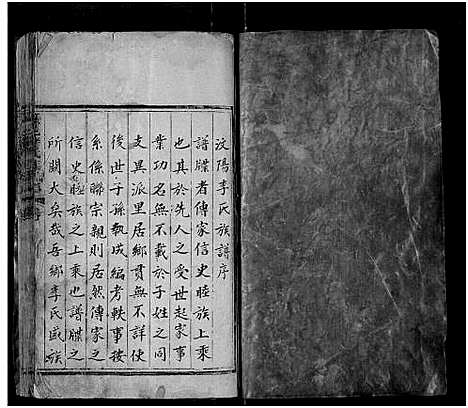 汶陽李氏族譜序
譜牒者傳家信史睦族上乘
也其於先人之受世起家事
業功名無不載於子姓之同
支異派里居鄉貫無不詳使
後世子孫執成編考軼事接
系係聯宗親則居然傳家之
信史睦族之上乘也譜牒之
所關大矣哉吾鄉李氏盛族